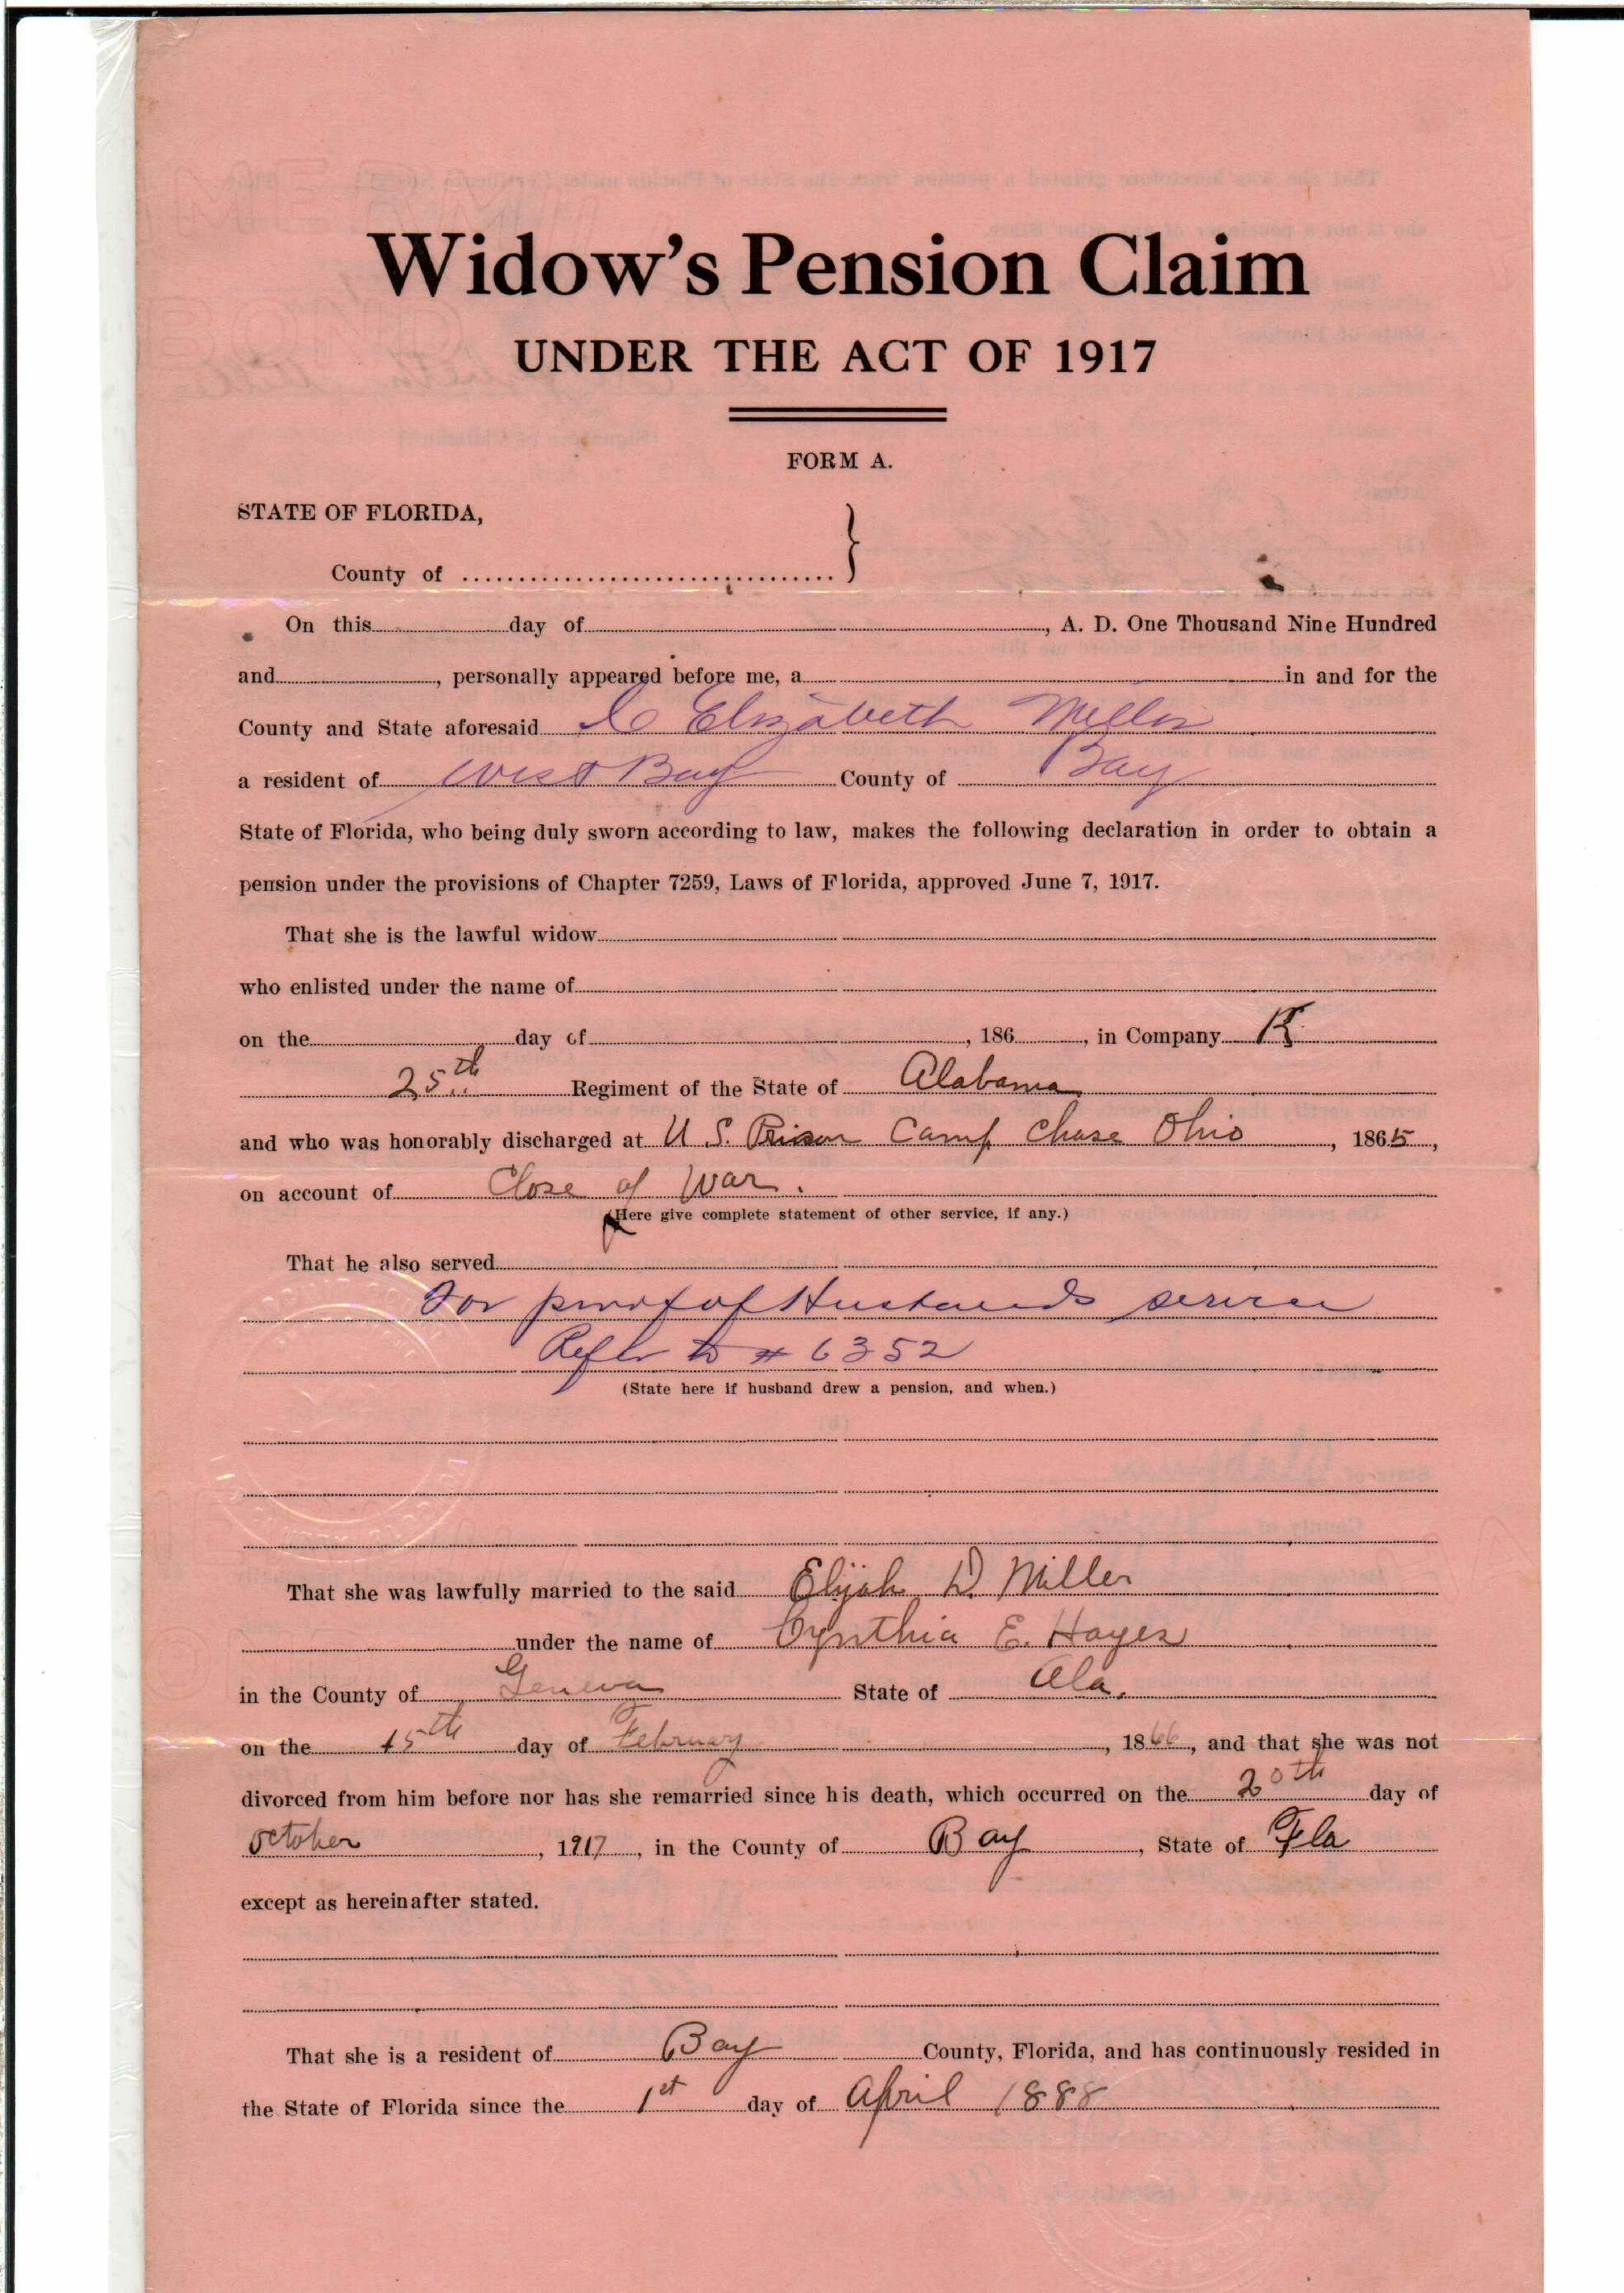 Widow's Pension Claim
UNDER THE ACT OF 1917
FORM A.
STATE OF FLORIDA,
County of
On this day of , A. D. One Thousand Nine Hundred
and , personally appeared before me, a in and for the
County and State aforesaid C Elizabeth Miller
a resident of West Bay County of Bay
State of Florida, who being duly sworn according to law, makes the following declaration in order to obtain a
pension under the provisions of Chapter 7259, Laws of Florida, approved June 7, 1917.
That she is the lawful widow
who enlisted under the name of
on the day of , 186 , in Company K
25th Regiment of the State of Alabama
and who was honorably discharged at U S. Prison Camp Chase Ohio , 1865 ,
on account of Close of War.
(Here give complete statement of other service, if any.)
That he also served
For proof of Husbands service
Refer to # 6352
(State here if husband drew a pension, and when.)
That she was lawfully married to the said Elijah D. Miller
under the name of Cynthia E. Hayes
in the County of Geneva State of Ala.
on the 15th day of February , 1866 , and that she was not
divorced from him before nor has she remarried since his death, which occurred on the 20th day of
October , 1917 , in the County of Bay , State of Fla
except as hereinafter stated.
That she is a resident of Bay County, Florida, and has continuously resided in
the State of Florida since the 1st day of April 1888